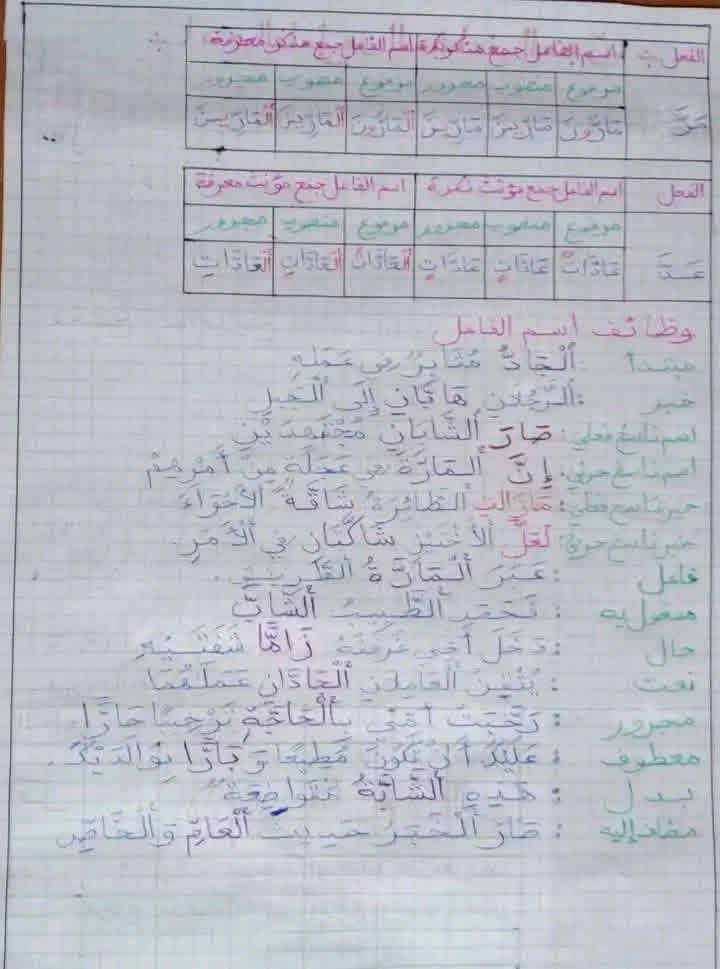 الفعل اسم الفاعل جمع مذكر نكرة اسم الفاعل جمع مذكر معرفة
مرفوع منصوب مجرور مرفوع منصوب مجرور
مَرَّ مَارُّونَ مَارِّينَ مَارِّينَ اَلْمَارُّونَ اَلْمَارِّينَ اَلْمَارِّينَ
الفعل اسم الفاعل جمع مؤنث نكرة اسم الفاعل جمع مؤنث معرفة
مرفوع منصوب مجرور مرفوع منصوب مجرور
عَدَّ عَادَّاتٌ عَادَّاتٍ عَادَّاتٍ اَلْعَادَّاتُ اَلْعَادَّاتِ اَلْعَادَّاتِ
وظائف اسم الفاعل
مبتدأ : اَلْجَادُّ مُثَابِرٌ فِي عَمَلِهِ
خبر : اَلرَّجُلَانِ هَامَّانِ إِلَى اَلْجَبَلِ
اسم ناسخ فعلي : صَارَ اَلشَّابَّانِ مُجْتَهِدَيْنِ
اسم ناسخ حرفي : إِنَّ اَلْمَارَّةَ فِي عَجَلَةٍ مِنْ أَمْرِهِمْ
خبر ناسخ فعلي : مَازَالَتِ الطَّائِرَةُ شَاقَّةً الأَجْوَاءَ
خبر ناسخ حرفي : لَعَلَّ شَاكَّتَانِ فِي الأَمْرِ.
فاعل : عَبَرَ اَلْمَارَّةُ اَلطَّرِيقَ.
مفعول به : اَلطَّبِيبُ اَلشَّابَّ
حال : دَخَلَ أَخِي غُرْفَتَهُ زَامًّا شَفَتَيْهِ
نعت : اَلْعَامِلَانِ اَلْجَادَّانِ عَمَلَهُمَا
مجرور : رَحَّبَتْ أُخْتِي تَرْحِيبًا حَارًّا
معطوف : عَلَيْكَ أَنْ تَكُونَ مُطِيعًا وَ بَارًّا بِوَالِدَيْكَ.
بدل : هَذِهِ اَلشَّابَّةُ مُتَوَاضِعَةٌ
مضاف إليه : صَارَ اَلْخَبَرُ حَدِيثَ اَلْعَامِّ وَاَلْخَاصِّ